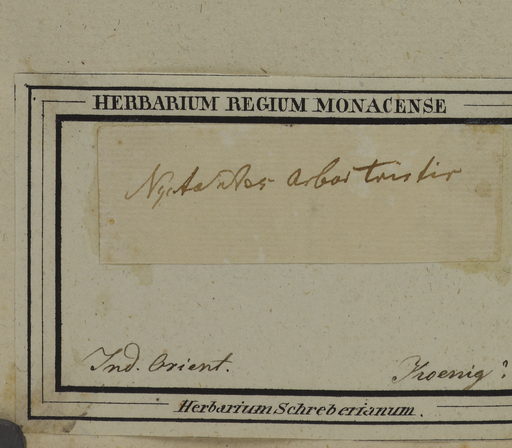 HERBARIUM REGIUM MONACENSE
Nyctantes arbor tristis
Ind. Orient.
Koenig?
Herbarium Schreberianum.